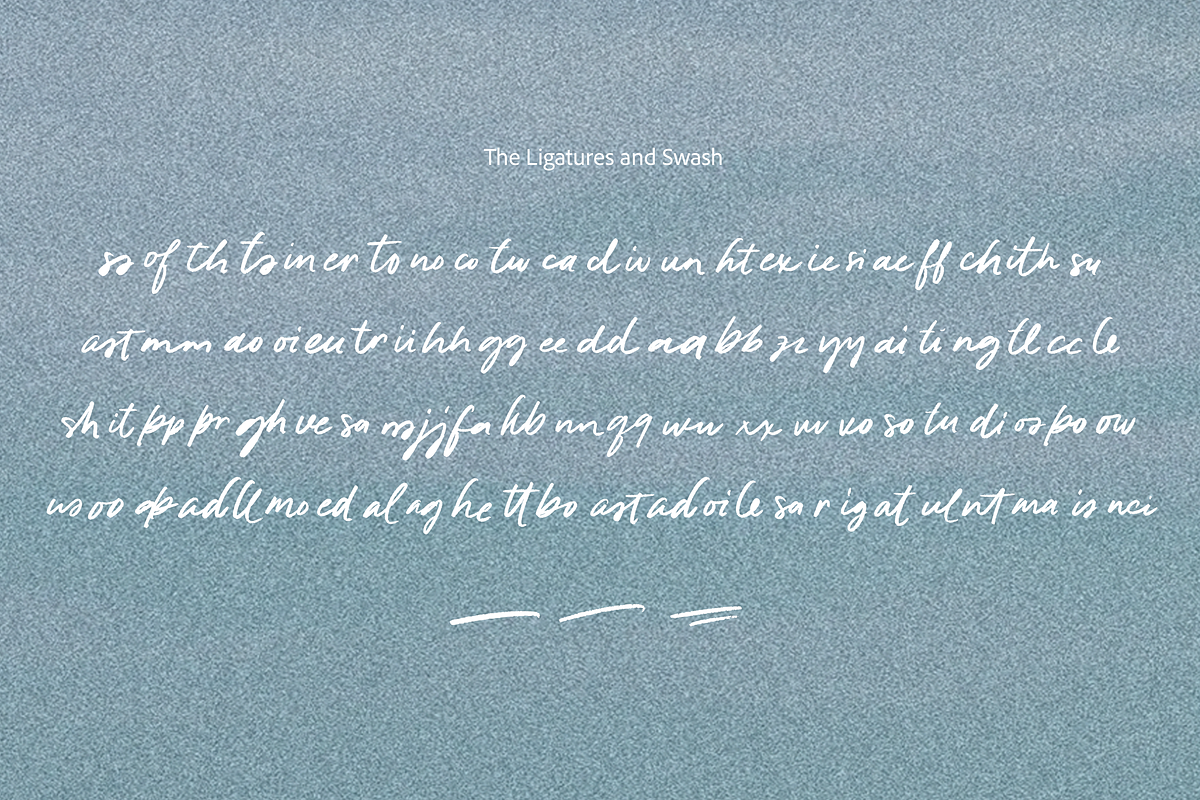 The Ligatures and Swash
ss of th ts in er to no co tw ca d iv un ht ex ie si ae ff ch ith su
ast mm ao oi eu tr ii hh gg ee dd aa bb zz yy ai ti ng tl cc le
sh it pp pr gh ve sa rs jj fa kb nn qq ww xx vv vo so tu di os po ow
us oo ap ad ll mo ed al ag he tt bo ast ad oi le sa r ig at ul nt ma is nci